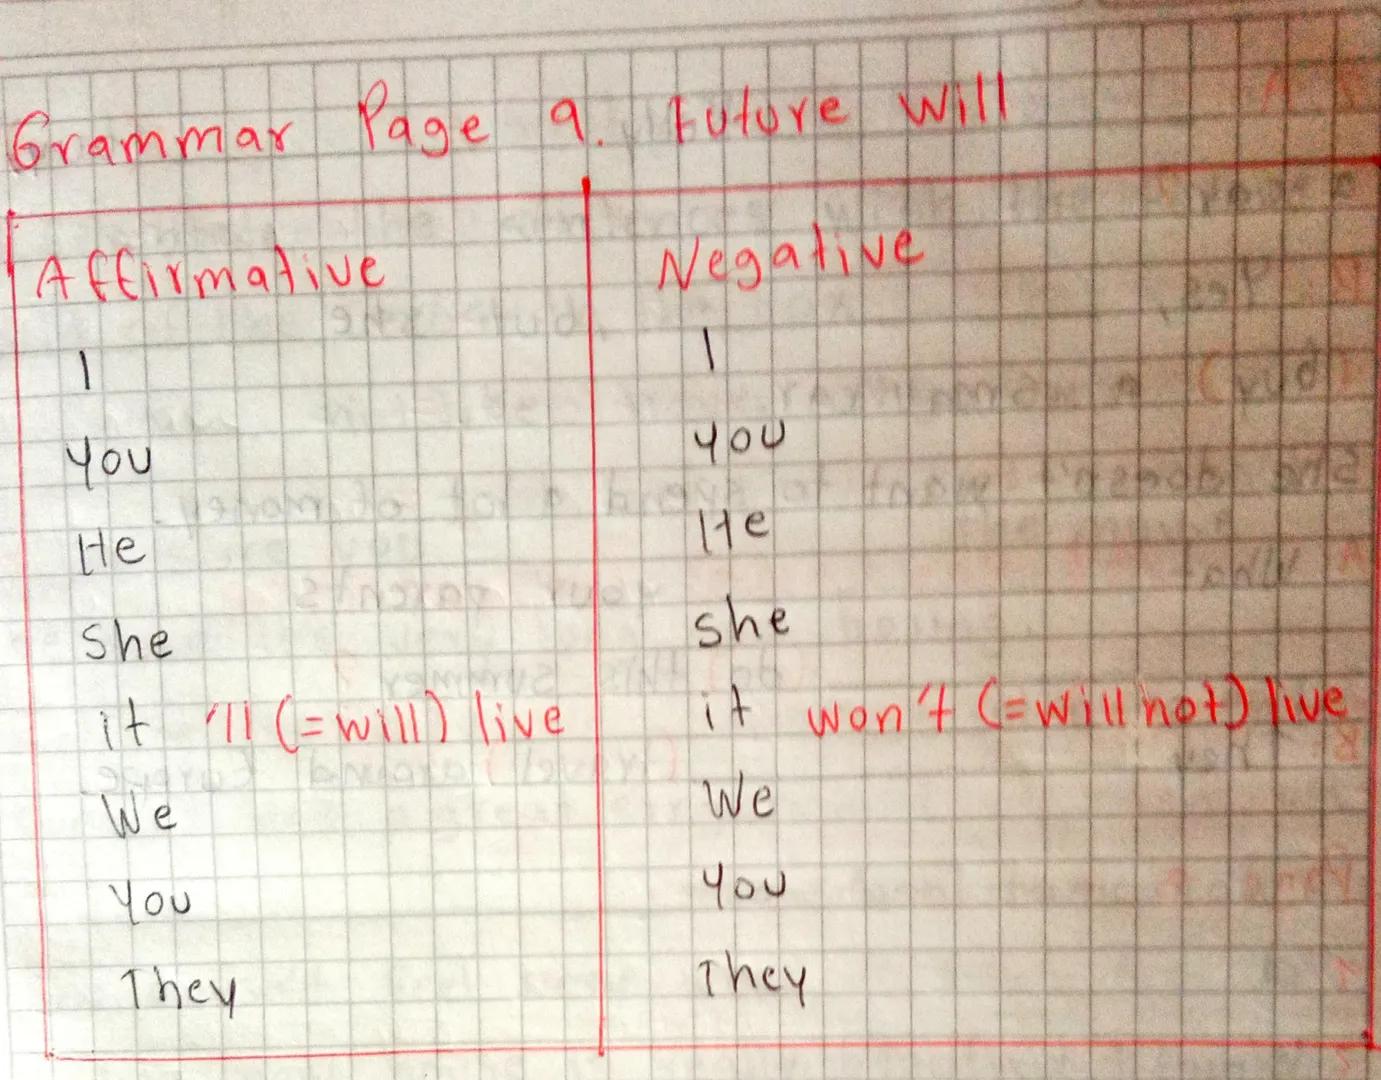 Grammar Page 9. Future Will
Affirmative
I
you
He
She
it 'll (=will) live
We
You
They
Negative
I
you
He
she
it won't (=will not) live
We
You
They